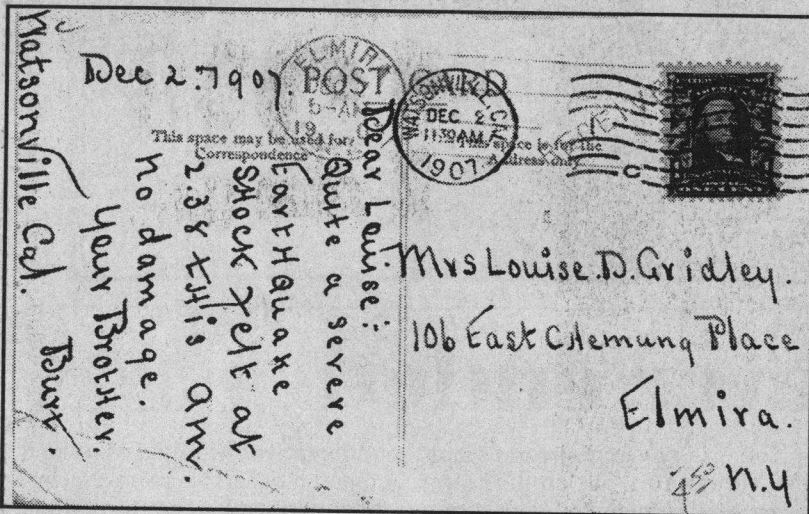 Watsonville Cal.
Dec 2. 1907.
POST CARD
ELMIRA
5-AM
19
WATSONVILLE, CAL.
DEC 2
11 30AM
1907
RECEIVED
This space may be used for
Correspondence
This space is for the
Address only
C
Dear Louise:
Quite a severe
EartHquake
SHock Felt at
2.38 tHis am.
no damage.
Your BrotHer.
Burt.
Mrs Louise.D.Gridley.
106 East CHemung Place
Elmira.
N.Y
4 50